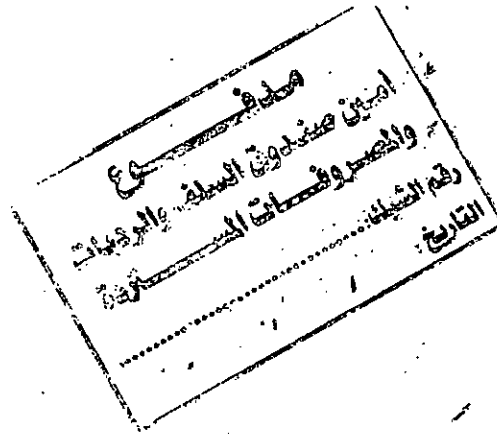 مدفـــــــوع
امين صندوق السلف والرديات
والمصروفـــات المســـــتردة
رقم الشيك ..............................
التاريخ: / /